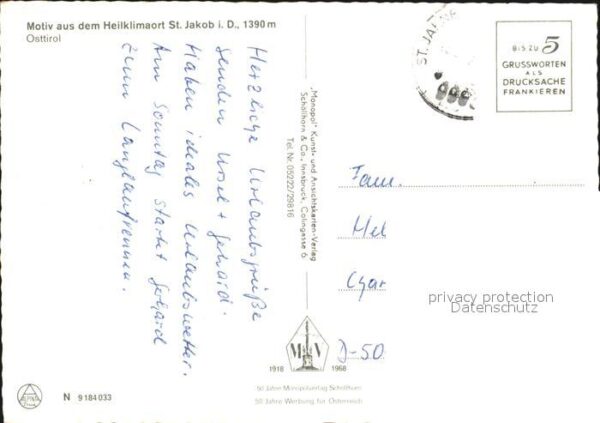 Motiv aus dem Heilklimaort St. Jakob i. D., 1390 m
Osttirol
Herzliche Urlaubsgrüße
senden Ursel + Gerhard.
Haben ideales Urlaubswetter.
Am Sonntag startet Gerhard
zum Langlaufrennen.
"Monopol" Kunst- und Ansichtskarten-Verlag
Schöllhorn & Co., Innsbruck, Colingasse 6
Tel. Nr. 05222/29816
ST. JA
BIS ZU 5
GRUSSWORTEN
ALS
DRUCKSACHE
FRANKIEREN
Fam.
Mel
D-50
privacy protection
Datenschutz
M V
1918 1968
50 Jahre Monopolverlag Schöllhorn
50 Jahre Werbung für Österreich
N 9184033